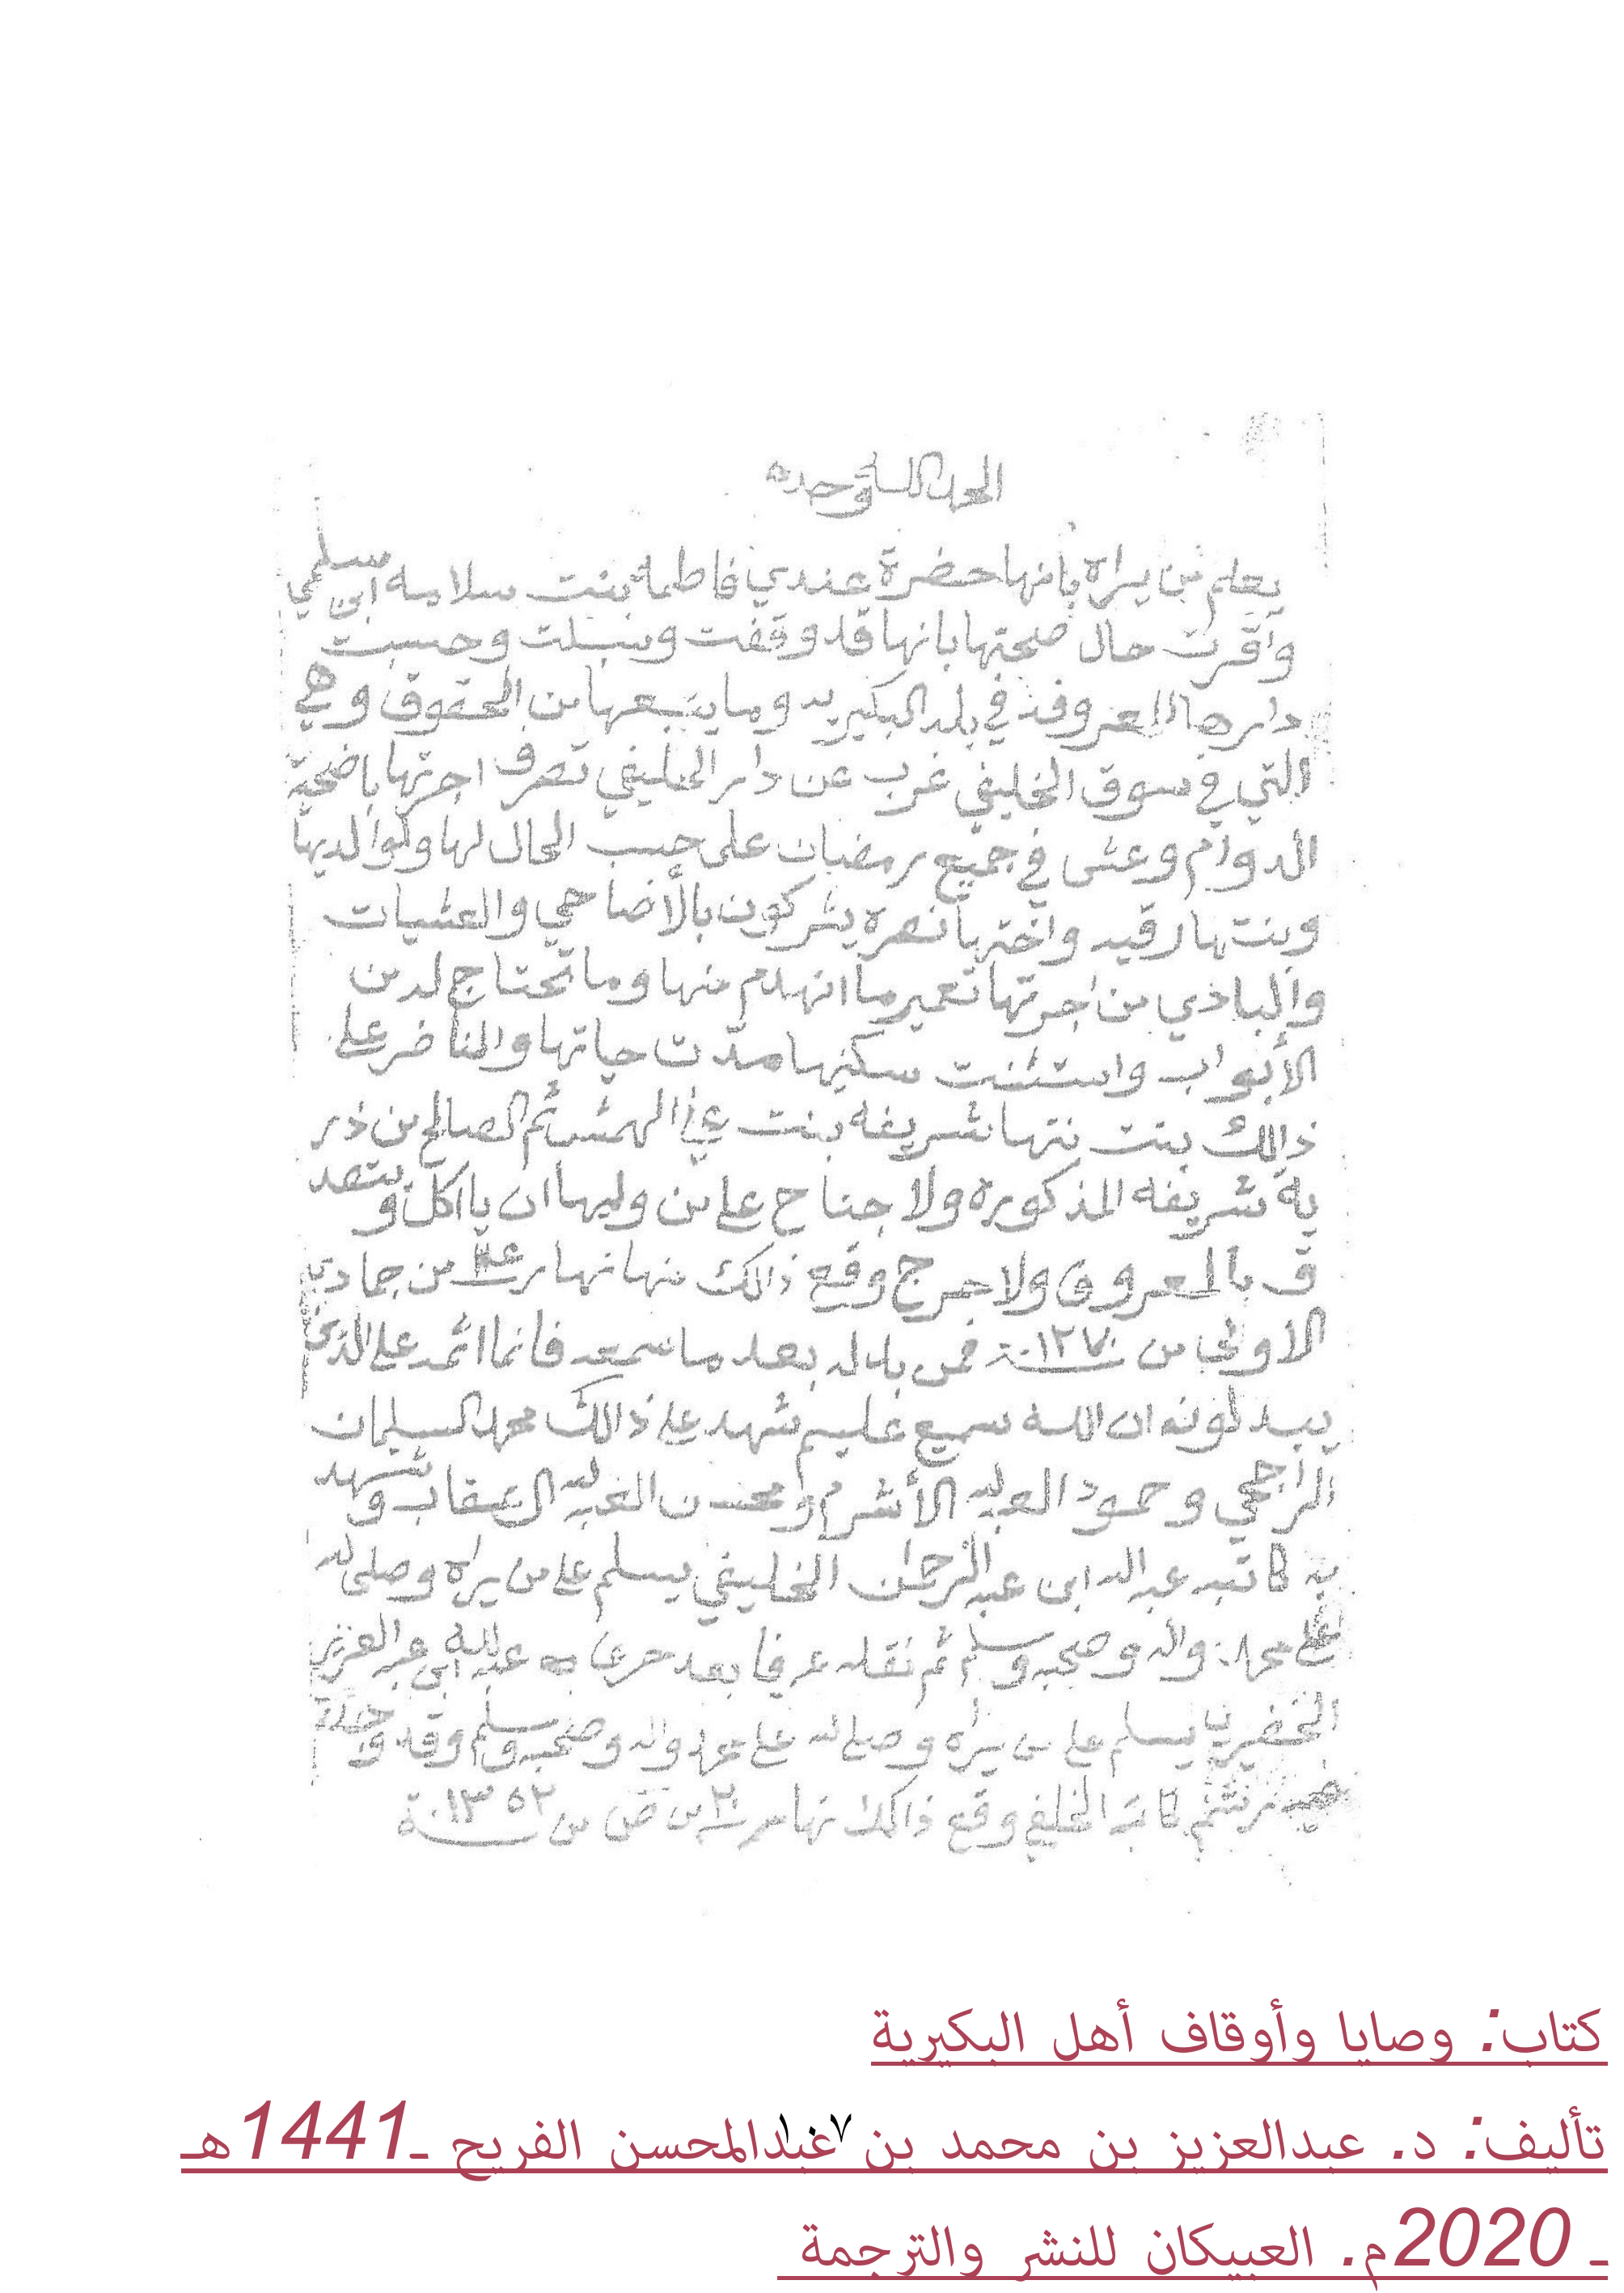 الحمد لله وحده
يعلم من يراه بانها حضرة عندي فاطمة بنت سلامه ابن سلمي
واقرت حال صحتها بانها قد وقفت وسبلت وحبست
دارها المعروفه في بلد البكيريه وما يتبعها من الحقوق وهي
التي في سوق الخليفي غرب عن دار الخليفي تصرف اجرتها باضحية
الدوام وعشى في جميع رمضان على حسب الحال لها ولوالديها
وبنتها رقيه واختها نصره يشركون بالأضاحي والعشيات
والباذي من اجرتها تعمير ما انهدم منها وما تحتاج له من
الأبواب واستثنت سكنها مدت حياتها والناضر على
ذالك بنت بنتها شريفه بنت علي الهمش ثم الصالح من ذر
ية شريفه المذكوره ولا جناح على من وليها ان ياكل ويتصد
ق بالمعروف ولا حرج وقع ذالك منها نهار من جمادي
الاولى من ١٢٧٠ سنة فمن بدله بعد ما سمعه فانما اثمه على الذي
يبدلونه ان الله سميع عليم شهد على ذالك محمد السليمان
الراجحي وحمود العبدالله الأشرم ومحسن العبدالله ال عقاب وشهد
به كاتبه عبدالله ابن عبدالرحمن الخليفي يسلم على من يراه وصلى الله
على محمد واله وصحبه وسلم ثم نقله حرفا بعد حرف عبدالله ابن عبدالعزيز
الخضيري يسلم على من يراه وصلى الله على محمد واله وصحبه وسلم وقد وجدة
كاتبه الخليفي وقع ذالك نهار من سنة ١٣٥٢
كتاب: وصايا وأوقاف أهل البكيرية
تأليف: د. عبدالعزيز بن محمد بن عبدالمحسن الفريح ـ1441هـ
ـ 2020م. العبيكان للنشر والترجمة
١٠٧